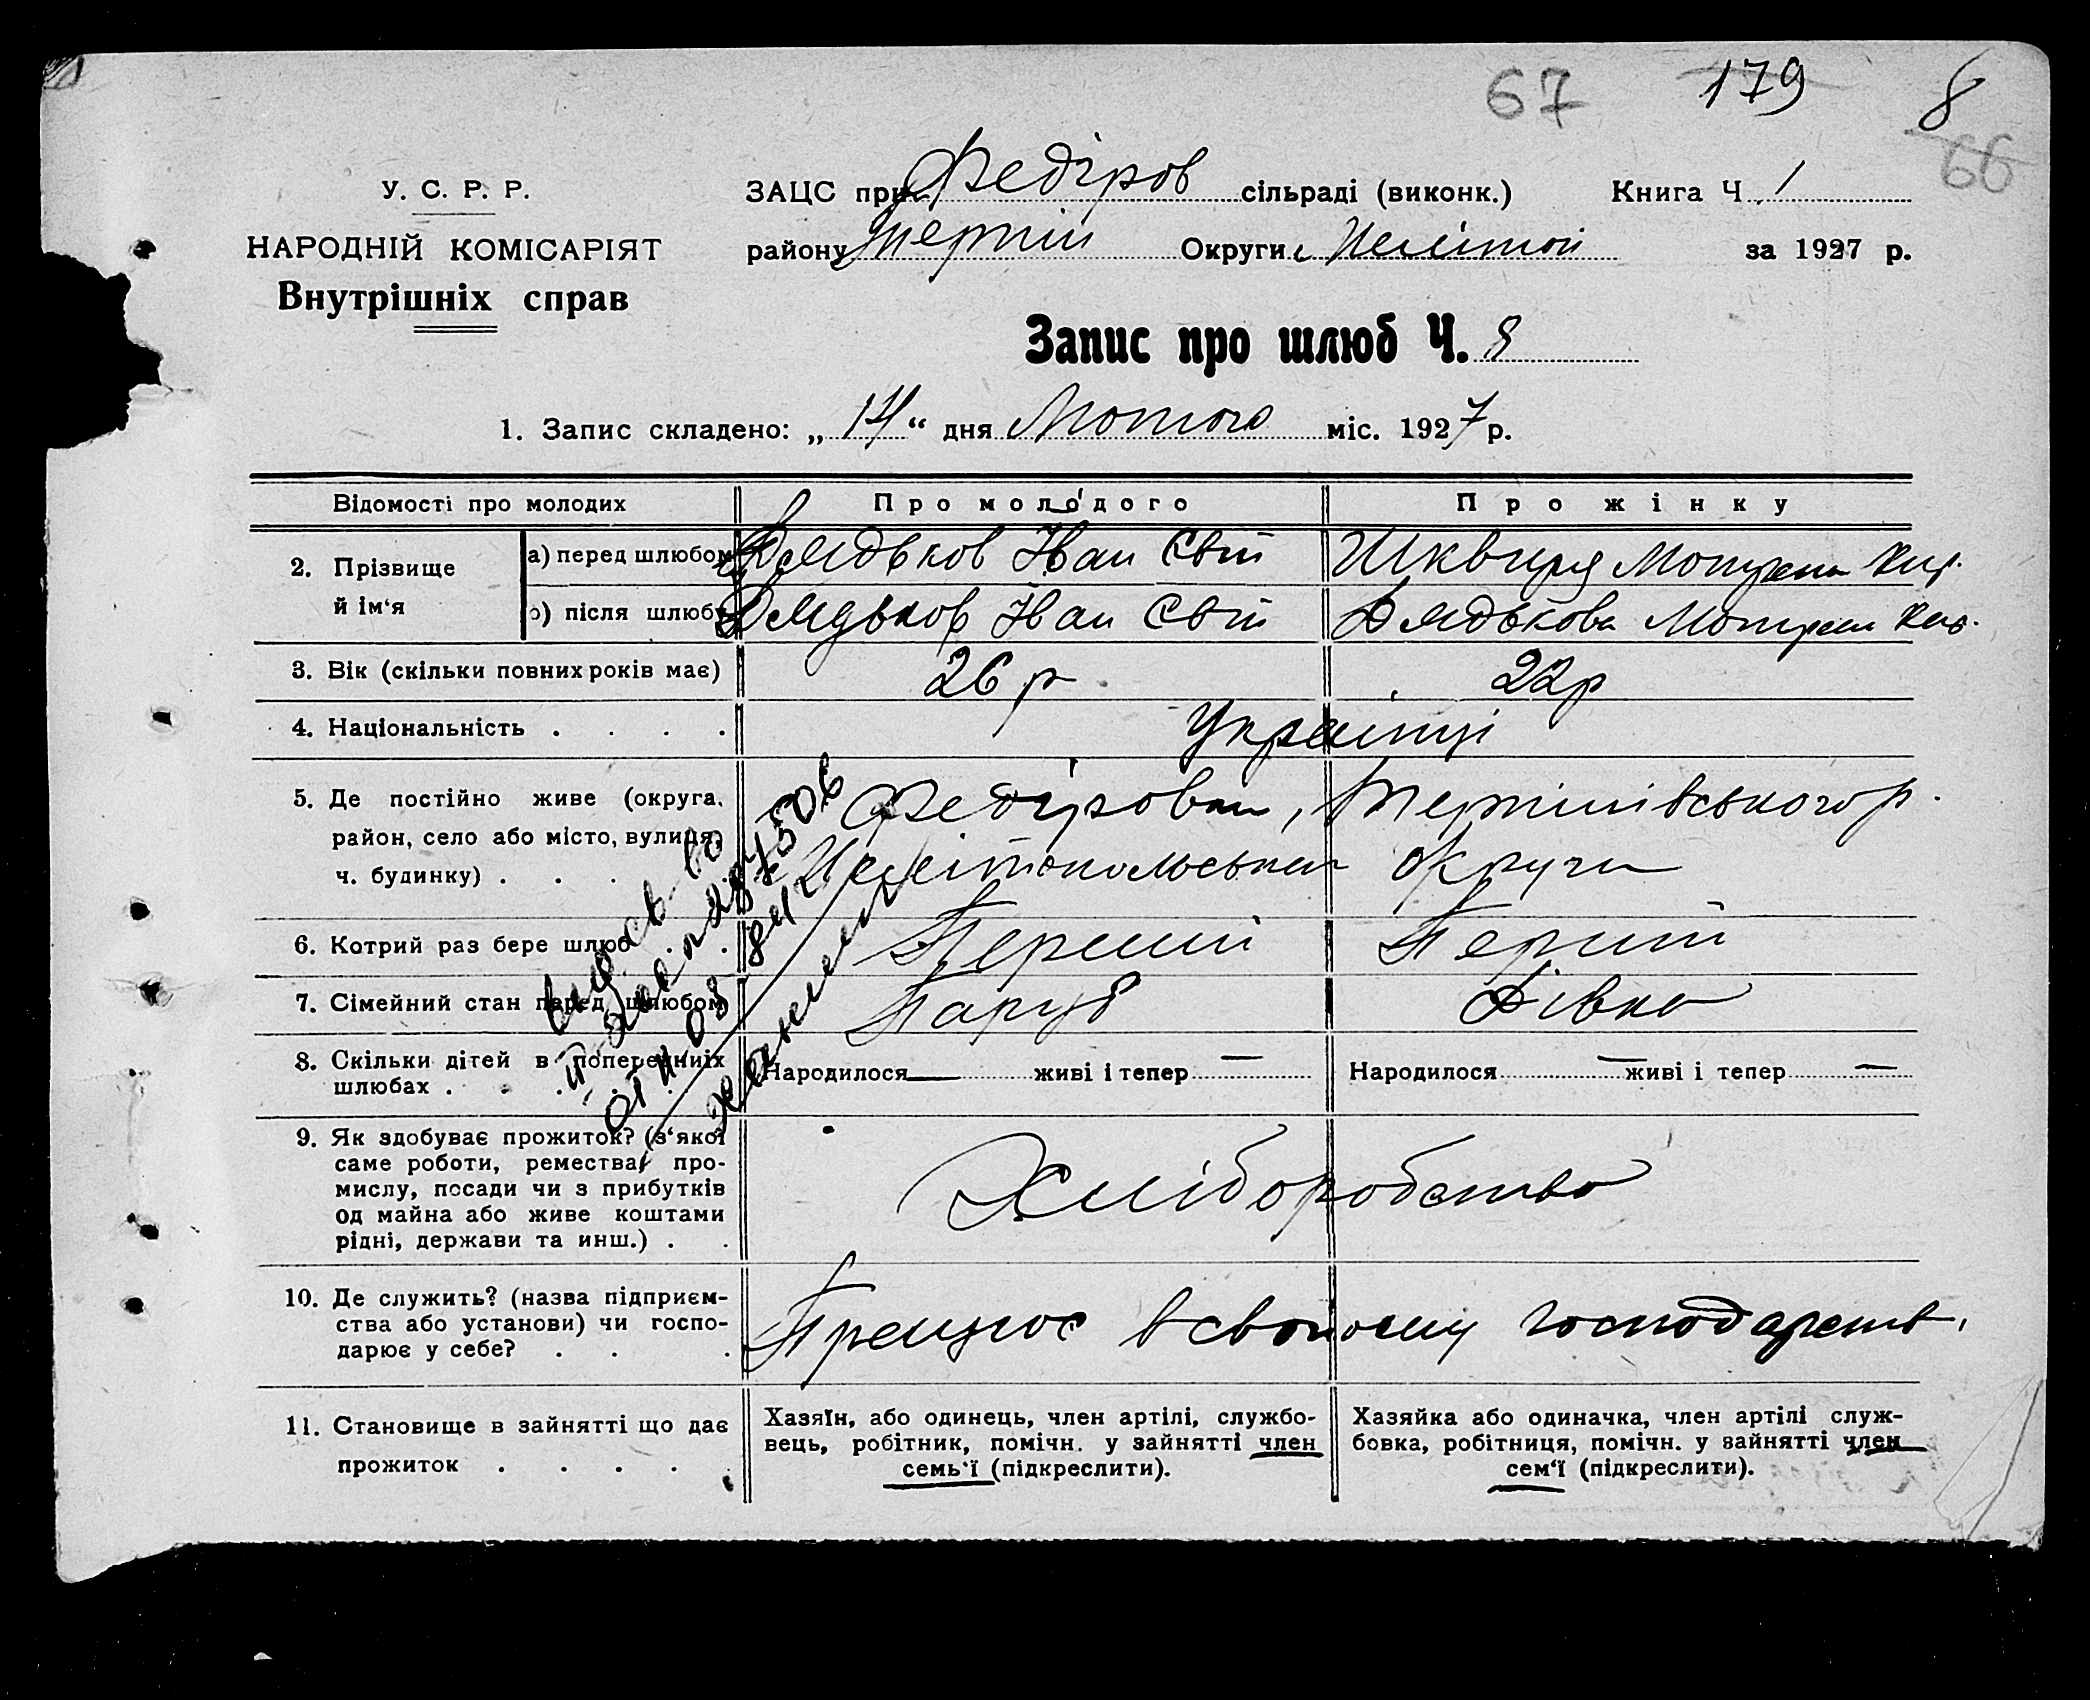 67 179 8
66
У. С. Р. Р.
НАРОДНІЙ КОМІСАРІЯТ
Внутрішніх справ
ЗАЦС при Федіров сільраді (виконк.) Книга Ч. 1
району Терпін Округи Меліто за 1927 р.
Запис про шлюб Ч. 8
1. Запис складено: „14“ дня Лютого міс. 1927 р.
Відомості про молодих Про молодого Про жінку
2. Прізвище й ім‘я
а) перед шлюбом Дядьков Іван Євт Шквиря Мотрона Кир.
б) після шлюбу Дядьков Іван Євт Дядькова Мотрона Кир.
3. Вік (скільки повних років має) 26 р 22р
4. Національність . . . . Українці
5. Де постійно живе (округа, Федіровка, Терпінівського р.
район, село або місто, вулиця, Мелітопольськои округи
ч. будинку) . . . .
6. Котрий раз бере шлюб . . Перший Перший
7. Сімейний стан перед шлюбом Паруб Дівка
8. Скільки дітей в попередніх Народилося — живі і тепер — Народилося — живі і тепер —
шлюбах . . .
9. Як здобуває прожиток? (з‘якої
саме роботи, ремества, про-
мислу, посади чи з прибутків Хліборобство
од майна або живе коштами
рідні, держави та инш.) . .
10. Де служить? (назва підприєм-
ства або установи) чи госпо- Працюе в своиому господарств.
дарює у себе? . . .
11. Становище в зайнятті що дає
прожиток . . . . .
Хазяїн, або одинець, член артілі, службо-
вець, робітник, помічн. у зайнятті член
семь‘ї (підкреслити).
Хазяйка або одиначка, член артілі служ-
бовка, робітниця, помічн. у зайнятті член
сем‘ї (підкреслити).